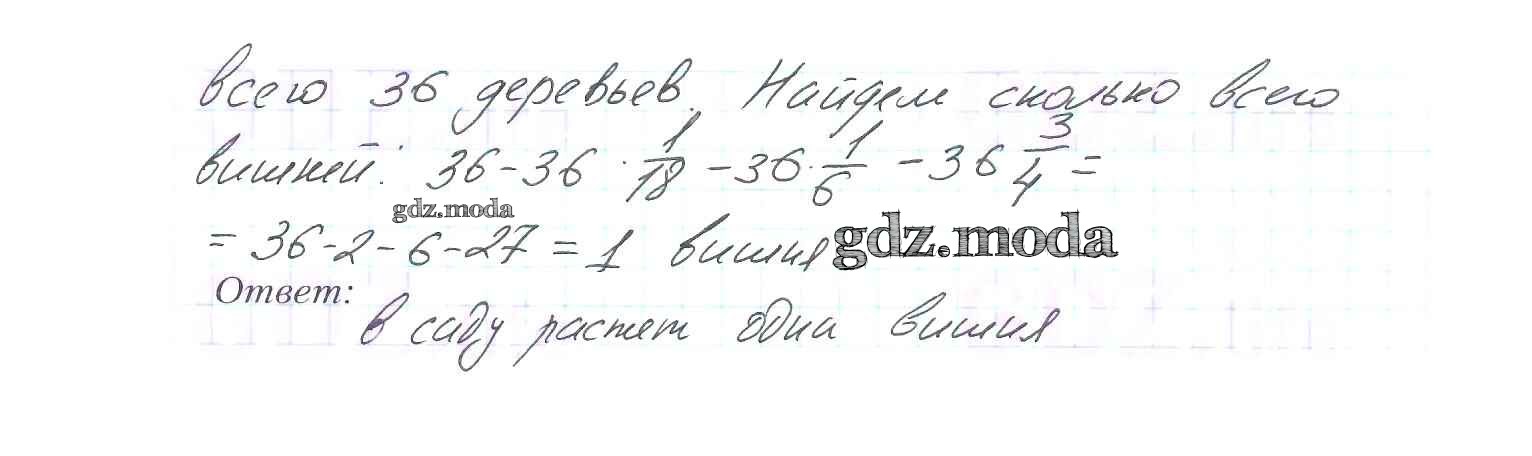 всего 36 деревьев. Найдем сколько всего
вишней: 36-36 · 1/18 -36· 1/6 -36 3/4 =
gdz.moda
= 36-2-6-27 = 1 вишня gdz.moda
Ответ:
в саду растет одна вишня